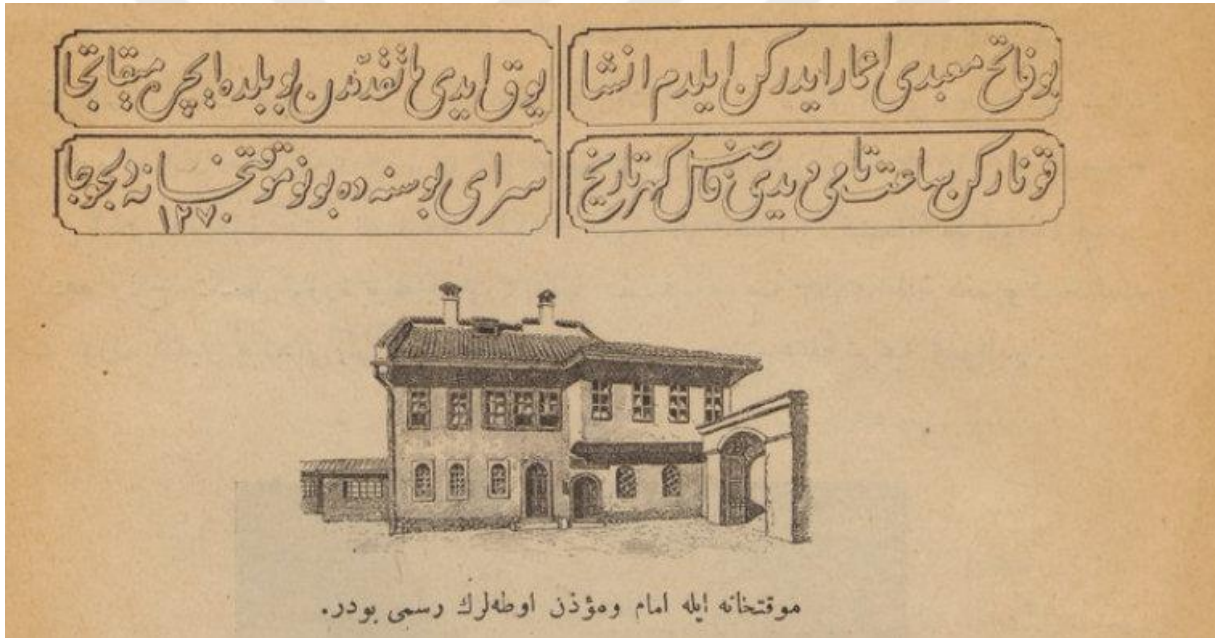 بو فاتح معبدى اعمار ايدركن ايلدم انشا
يوق ايدى ما تقدّمدن بو بلده ايچره ميقاتجا
قونارکن ساعت تامى ديدى فاضل گهر تاريخ
سراى بوسنه ده بو نو موقتخانه دلجو جا
١٢٧٠
موقتخانه ايله امام ومؤذن اوطه‌لرك رسمى بودر.